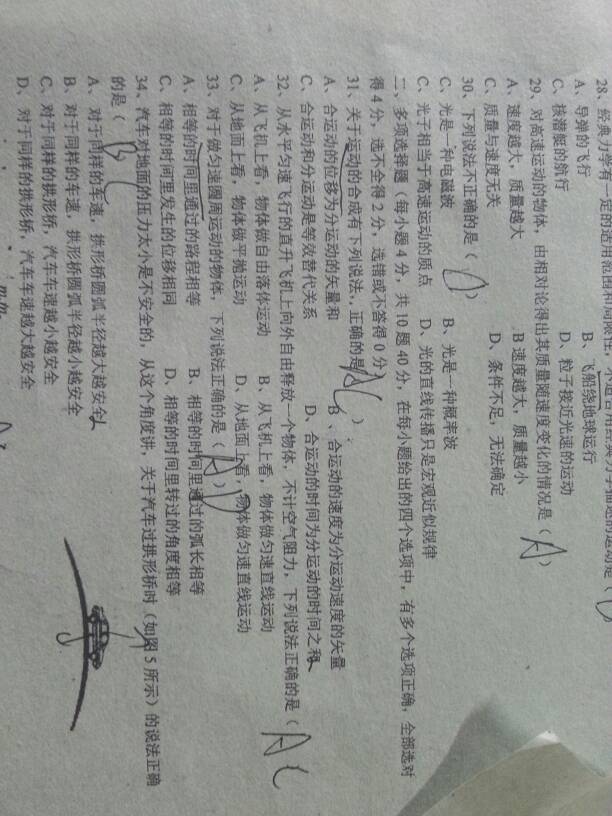 28、经典力学有一定的适用范围和局限性，不适合用经典力学描述的运动是（D）
A、导弹的飞行 B、飞船绕地球运行
C、核潜艇的航行 D、粒子接近光速的运动
29、对高速运动的物体，由相对论得出其质量随速度变化的情况是（A）
A、速度越大，质量越大 B 速度越大，质量越小
C、质量与速度无关 D、条件不足，无法确定
30、下列说法不正确的是（D）
C、光是一种电磁波 B、光是一种概率波
C、光子相当于高速运动的质点 D、光的直线传播只是宏观近似规律
二、多项选择题（每小题 4 分，共 10 题 40 分，在每小题给出的四个选项中，有多个选项正确，全部选对
得 4 分，选不全得 2 分，选错或不答得 0 分）
31、关于运动的合成有下列说法，正确的是（AC）
A、合运动的位移为分运动的矢量和 B、合运动的速度为分运动速度的矢量
C、合运动和分运动是等效替代关系 D、合运动的时间为分运动的时间之和
32、从水平匀速飞行的直升飞机上向外自由释放一个物体，不计空气阻力，下列说法正确的是（AC
A、从飞机上看，物体做自由落体运动 B、从飞机上看，物体做匀速直线运动
C、从地面上看，物体做平抛运动 D、从地面上看，物体做匀速直线运动
33、对于做匀速圆周运动的物体，下列说法正确的是（AD）
A、相等的时间里通过的路程相等 B、相等的时间里通过的弧长相等
C、相等的时间里发生的位移相同 D、相等的时间里转过的角度相等
34、汽车对地面的压力太小是不安全的，从这个角度讲，关于汽车过拱形桥时（如图 5 所示）的说法正确
的是（BC
A、对于同样的车速，拱形桥圆弧半径越大越安全
B、对于同样的车速，拱形桥圆弧半径越小越安全
C、对于同样的拱形桥，汽车车速越小越安全
D、对于同样的拱形桥，汽车车速越大越安全